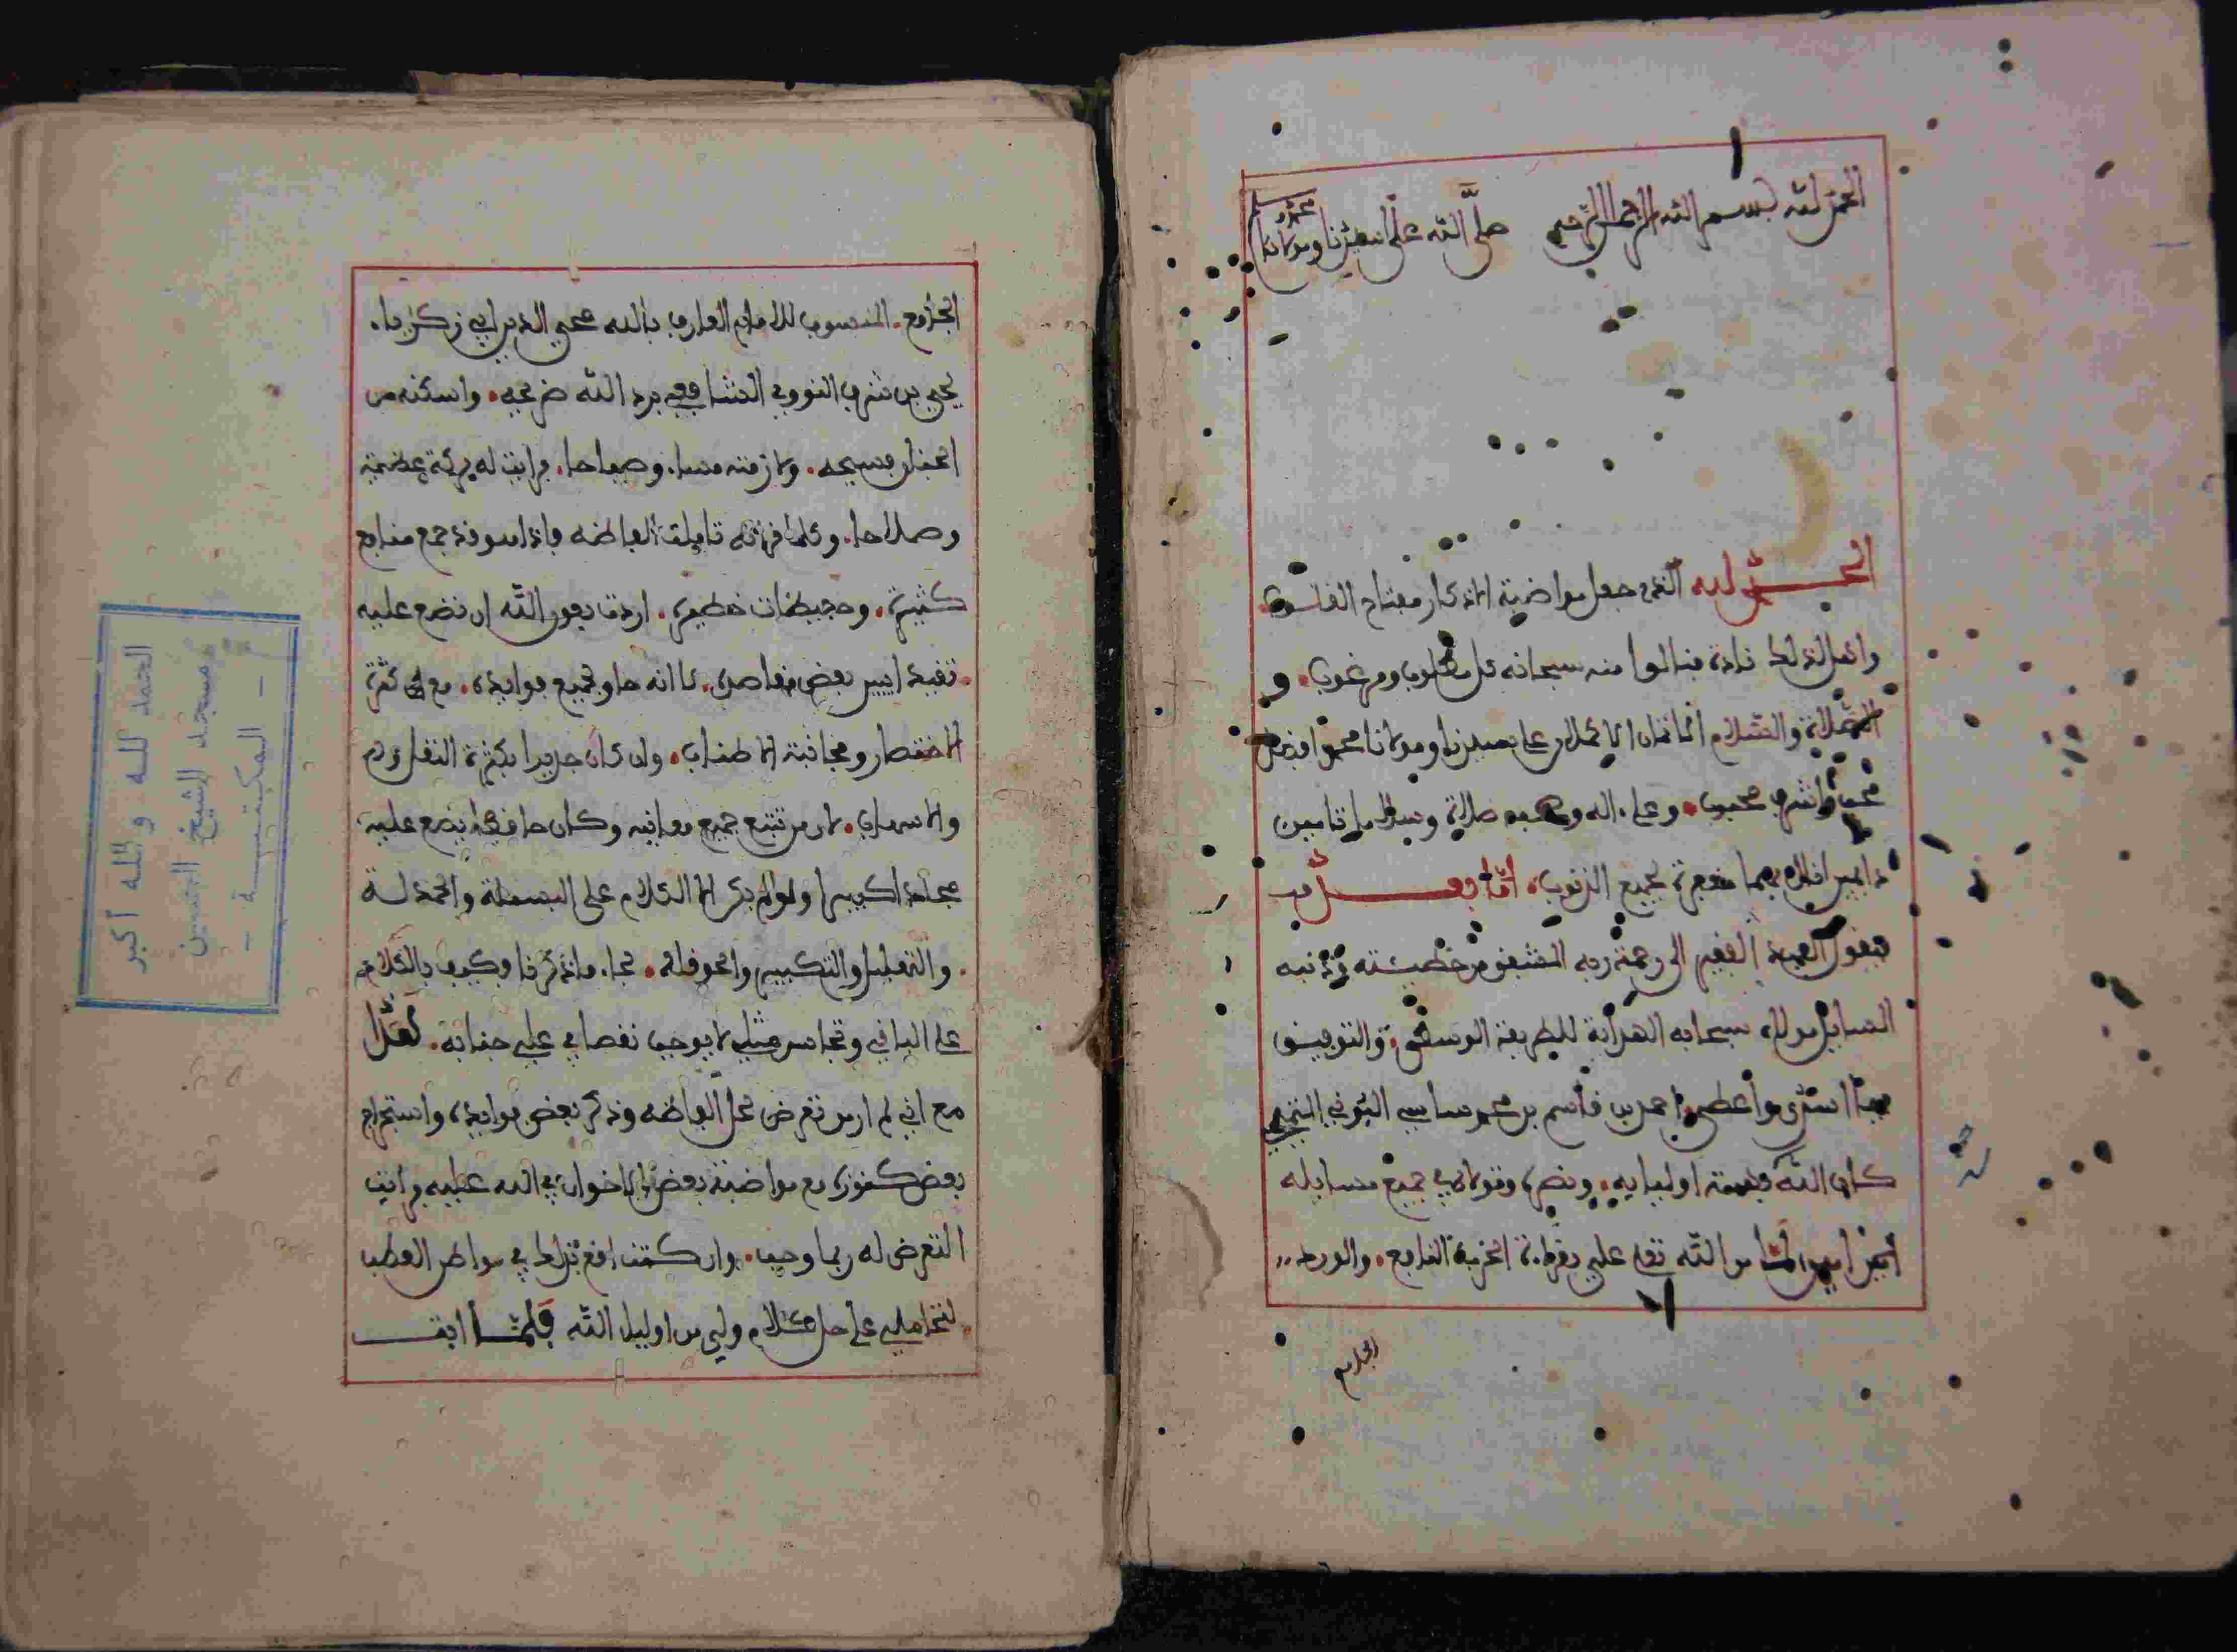 الحمد لله بسم الله الرحمن الرحيم صلى الله على سيدنا ومولانا محمد وسلم
الحمد لله الذي جعل مواضبة الاذكار مفتاح القلوب
واهل الذلك فنالوا منه سبحانه كل مطلوب ومرغوب و
الصلاة والسلام الاتمان الاكملان على سيدنا ومولانا محمد افضل
واشرف محبوب وعلى اله وصحبه صلاة وسلاما تامين
دايمين بهما مغفرة لجميع الذنوب اما بعد
فيقول العبيد الفقير الى رحمة ربه المشفق من خطيئته وذنبه
السايل مولاه سبحانه الهداية للطريقة الوسطى والتوفيق
احمد بن قاسم بن محمد ساسي البوني التميمي
كان الله اوليايه ونصره وتولاه في جميع مسايله
امين لما من الله تعلى علي بقراءة الحزب النافع والورد
الجامع
الجامع المنسوب للامام العارف بالله محي الدين ابي زكرياء
يحيى بن شرف النووي الشافعي برد الله ضريحه واسكنه من
الجنان فسيحه ولازمته مساء وصباحا فرايت له بركة عظيمة
وصلاحا وكلما قراته تاملت الفاظه فاذا هو قد جمع منافع
كثيرة وحفيظات خطيرة اردت بعون الله ان نضع عليه
تقييدا يبين بعض مقاصده لا انه حاو لجميع فوايده مع كثرة
الاختصار ومجانبة الاطناب وان كان جديرا بكثرة النقل
والاسهاب لان من تتبع جميع معانيه وكان حافظا يضع عليه
مجلدا كبيرا ولو لم يكن الا الكلام على البسملة والحمدلة
والتهليل والتكبير والحوقلة لجاء ما ذكرنا فكيف بالكلام
على الباقي وتجاسر مثلي لا يوجب نقصا في علي جنابه هذا
مع اني لم ار من تعرض لحل الفاظه وذكر بعض فوايده واستخراج
بعض كنوزه مع مواضبة بعض الاخوان في الله عليه فرايت
التعرض له ربما وجب وان كنت اقع بذلك في مواطن العطب
لتحاملي على حل كلام ولي من اولياء الله فلما ايقـ
الحمد لله والله أكبر
مسجد الشيخ الحسين
- المكتبة -